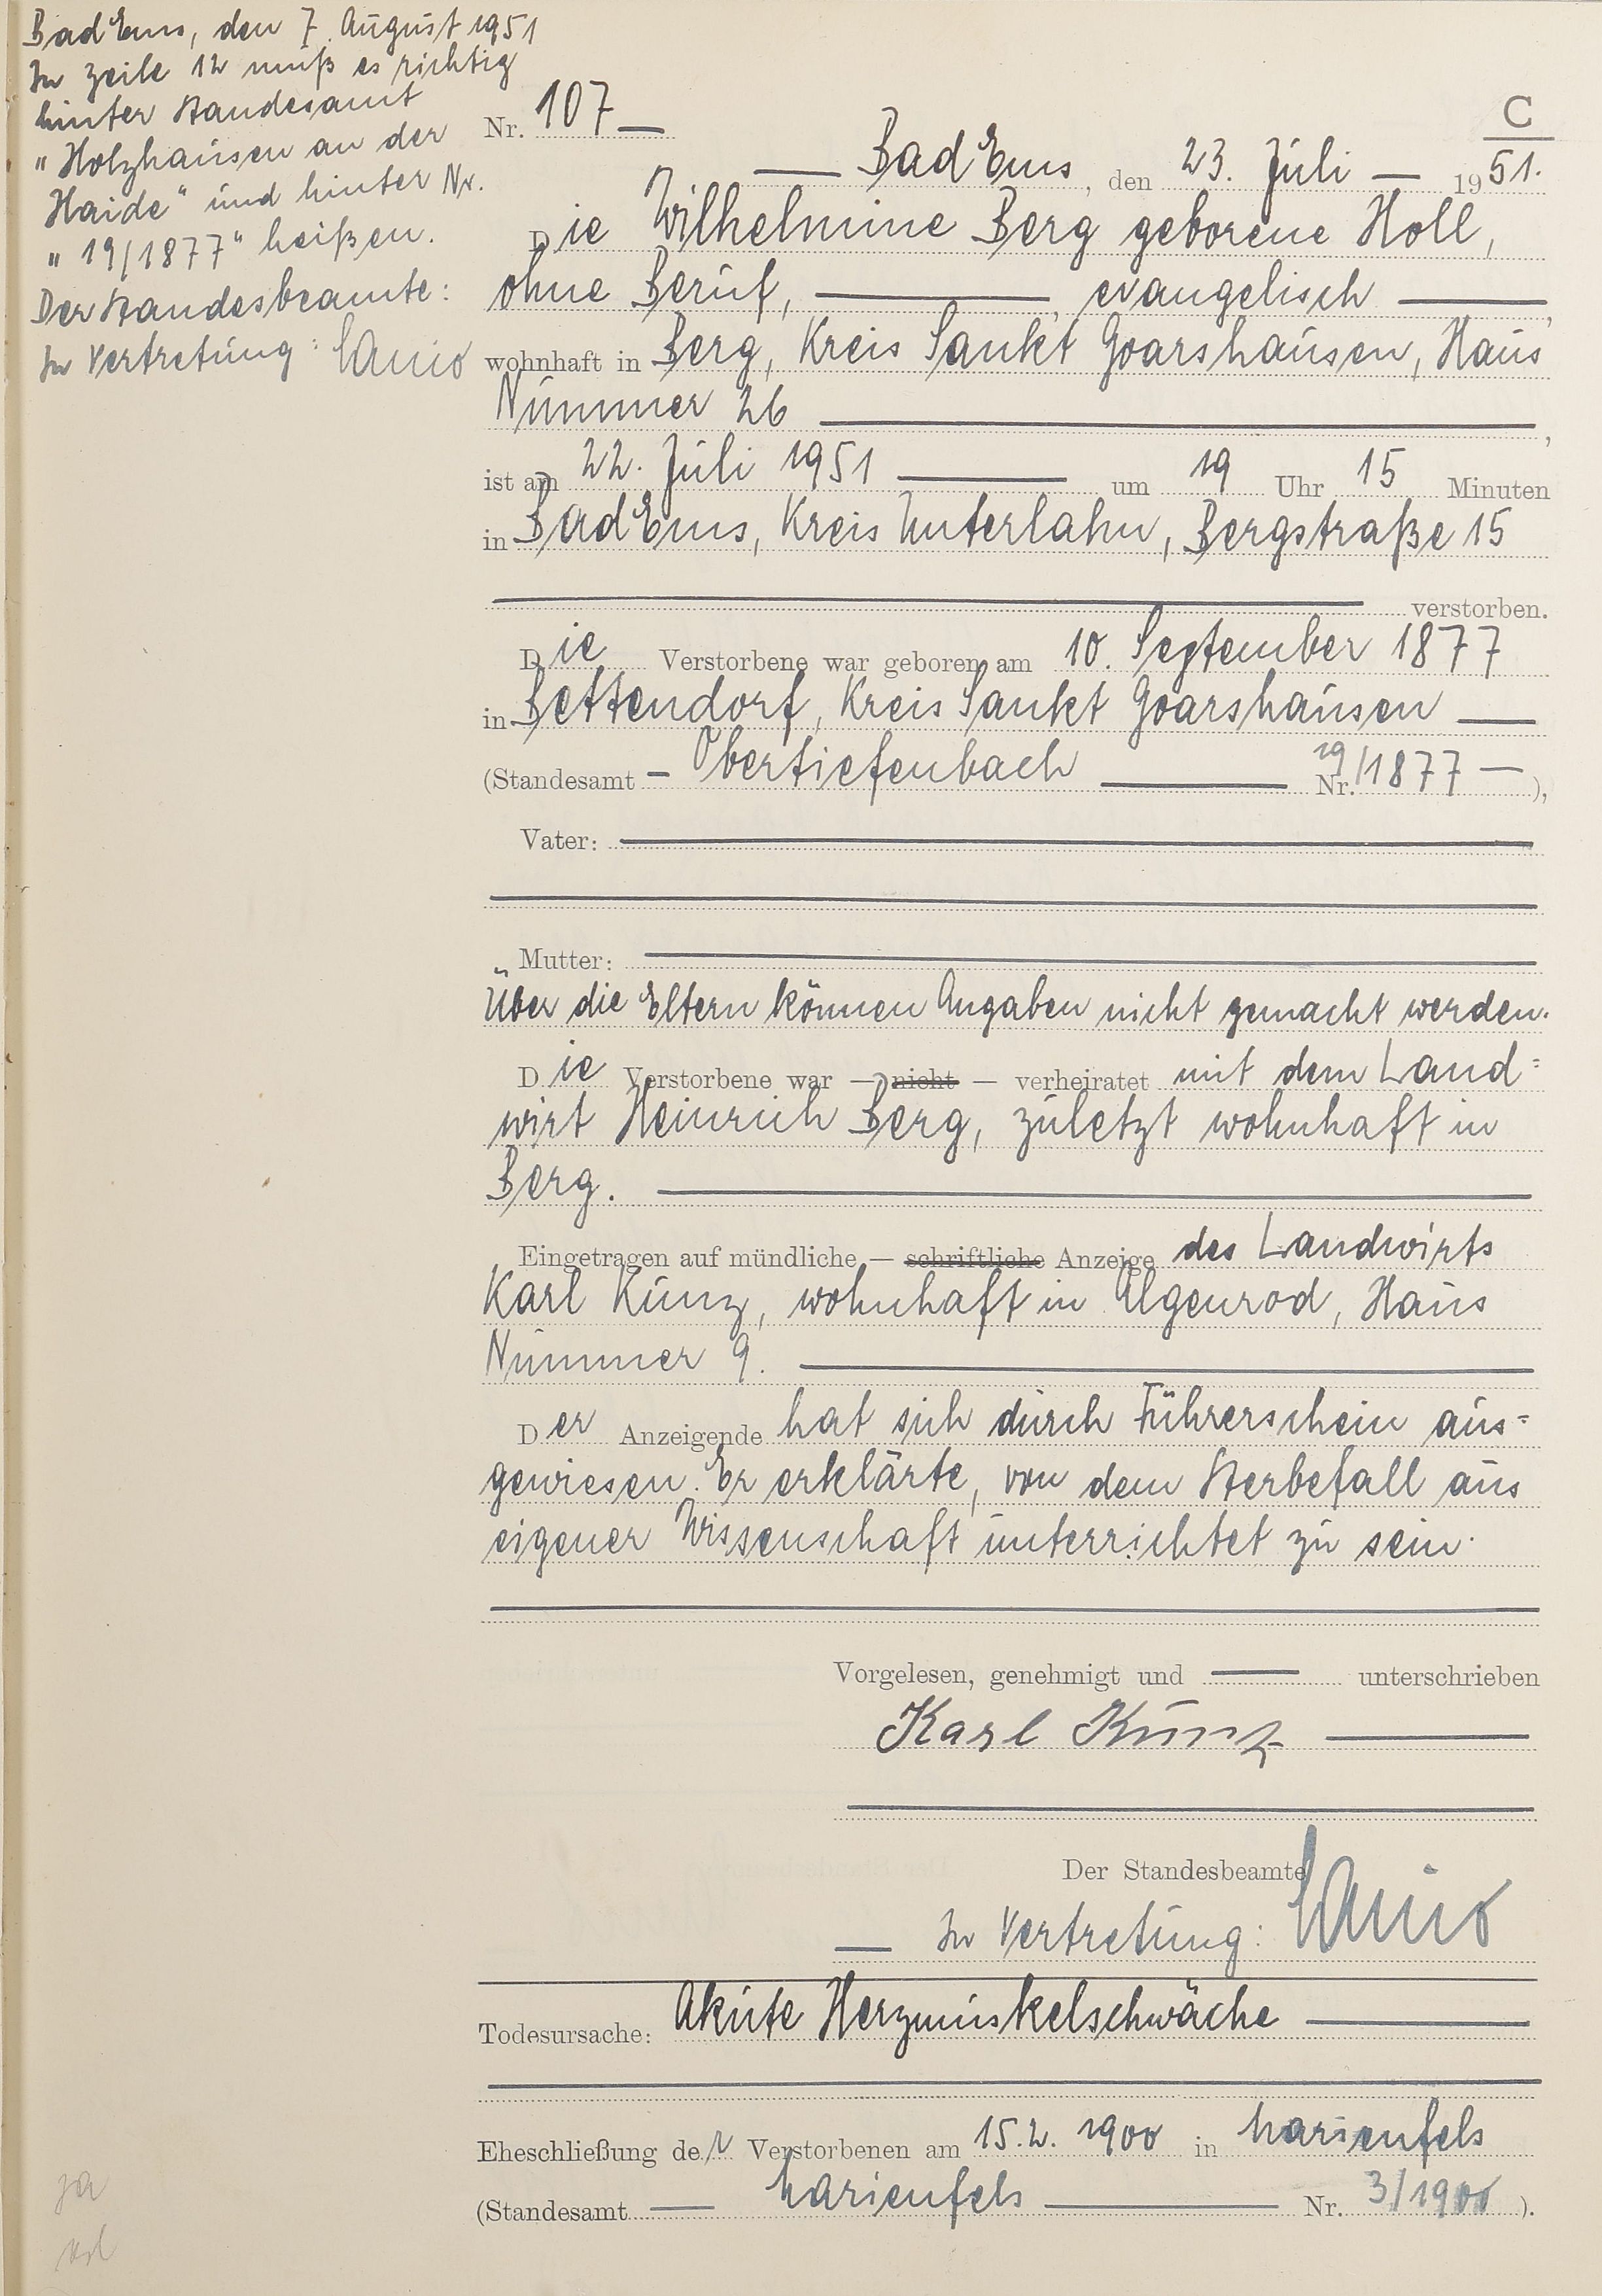 Bad Ems, den 7. August 1951
In Zeile 12 muß es richtig
hinter Standesamt
"Holzhausen an der
Haide" und hinter Nr.
"19/1877" heißen.
Der Standesbeamte:
In Vertretung:
C
Nr. 107
Bad Ems, den 23. Juli 1951.
Die Wilhelmine Berg geborene Holl,
ohne Beruf, evangelisch,
wohnhaft in Berg, Kreis Sankt Goarshausen, Haus
Nummer 26,
ist am 22. Juli 1951 um 19 Uhr 15 Minuten
in Bad Ems, Kreis Unterlahn, Bergstraße 15
verstorben.
Die Verstorbene war geboren am 10. September 1877
in Bettendorf, Kreis Sankt Goarshausen
(Standesamt Obertiefenbach Nr. 19/1877),
Vater:
Mutter:
Über die Eltern können Angaben nicht gemacht werden.
Die Verstorbene war — nicht — verheiratet mit dem Land=
wirt Heinrich Berg, zuletzt wohnhaft in
Berg.
Eingetragen auf mündliche — schriftliche Anzeige des Landwirts
Karl Kunz, wohnhaft in Algenrod, Haus
Nummer 9.
Der Anzeigende hat sich durch Führerschein aus=
gewiesen. Er erklärte, von dem Sterbefall aus
eigener Wissenschaft unterrichtet zu sein.
Vorgelesen, genehmigt und unterschrieben
Karl Kunz
Der Standesbeamte
In Vertretung:
Todesursache: Akute Herzmuskelschwäche
Eheschließung der Verstorbenen am 15.2.1900 in Marienfels
(Standesamt Marienfels Nr. 3/1900).
ja